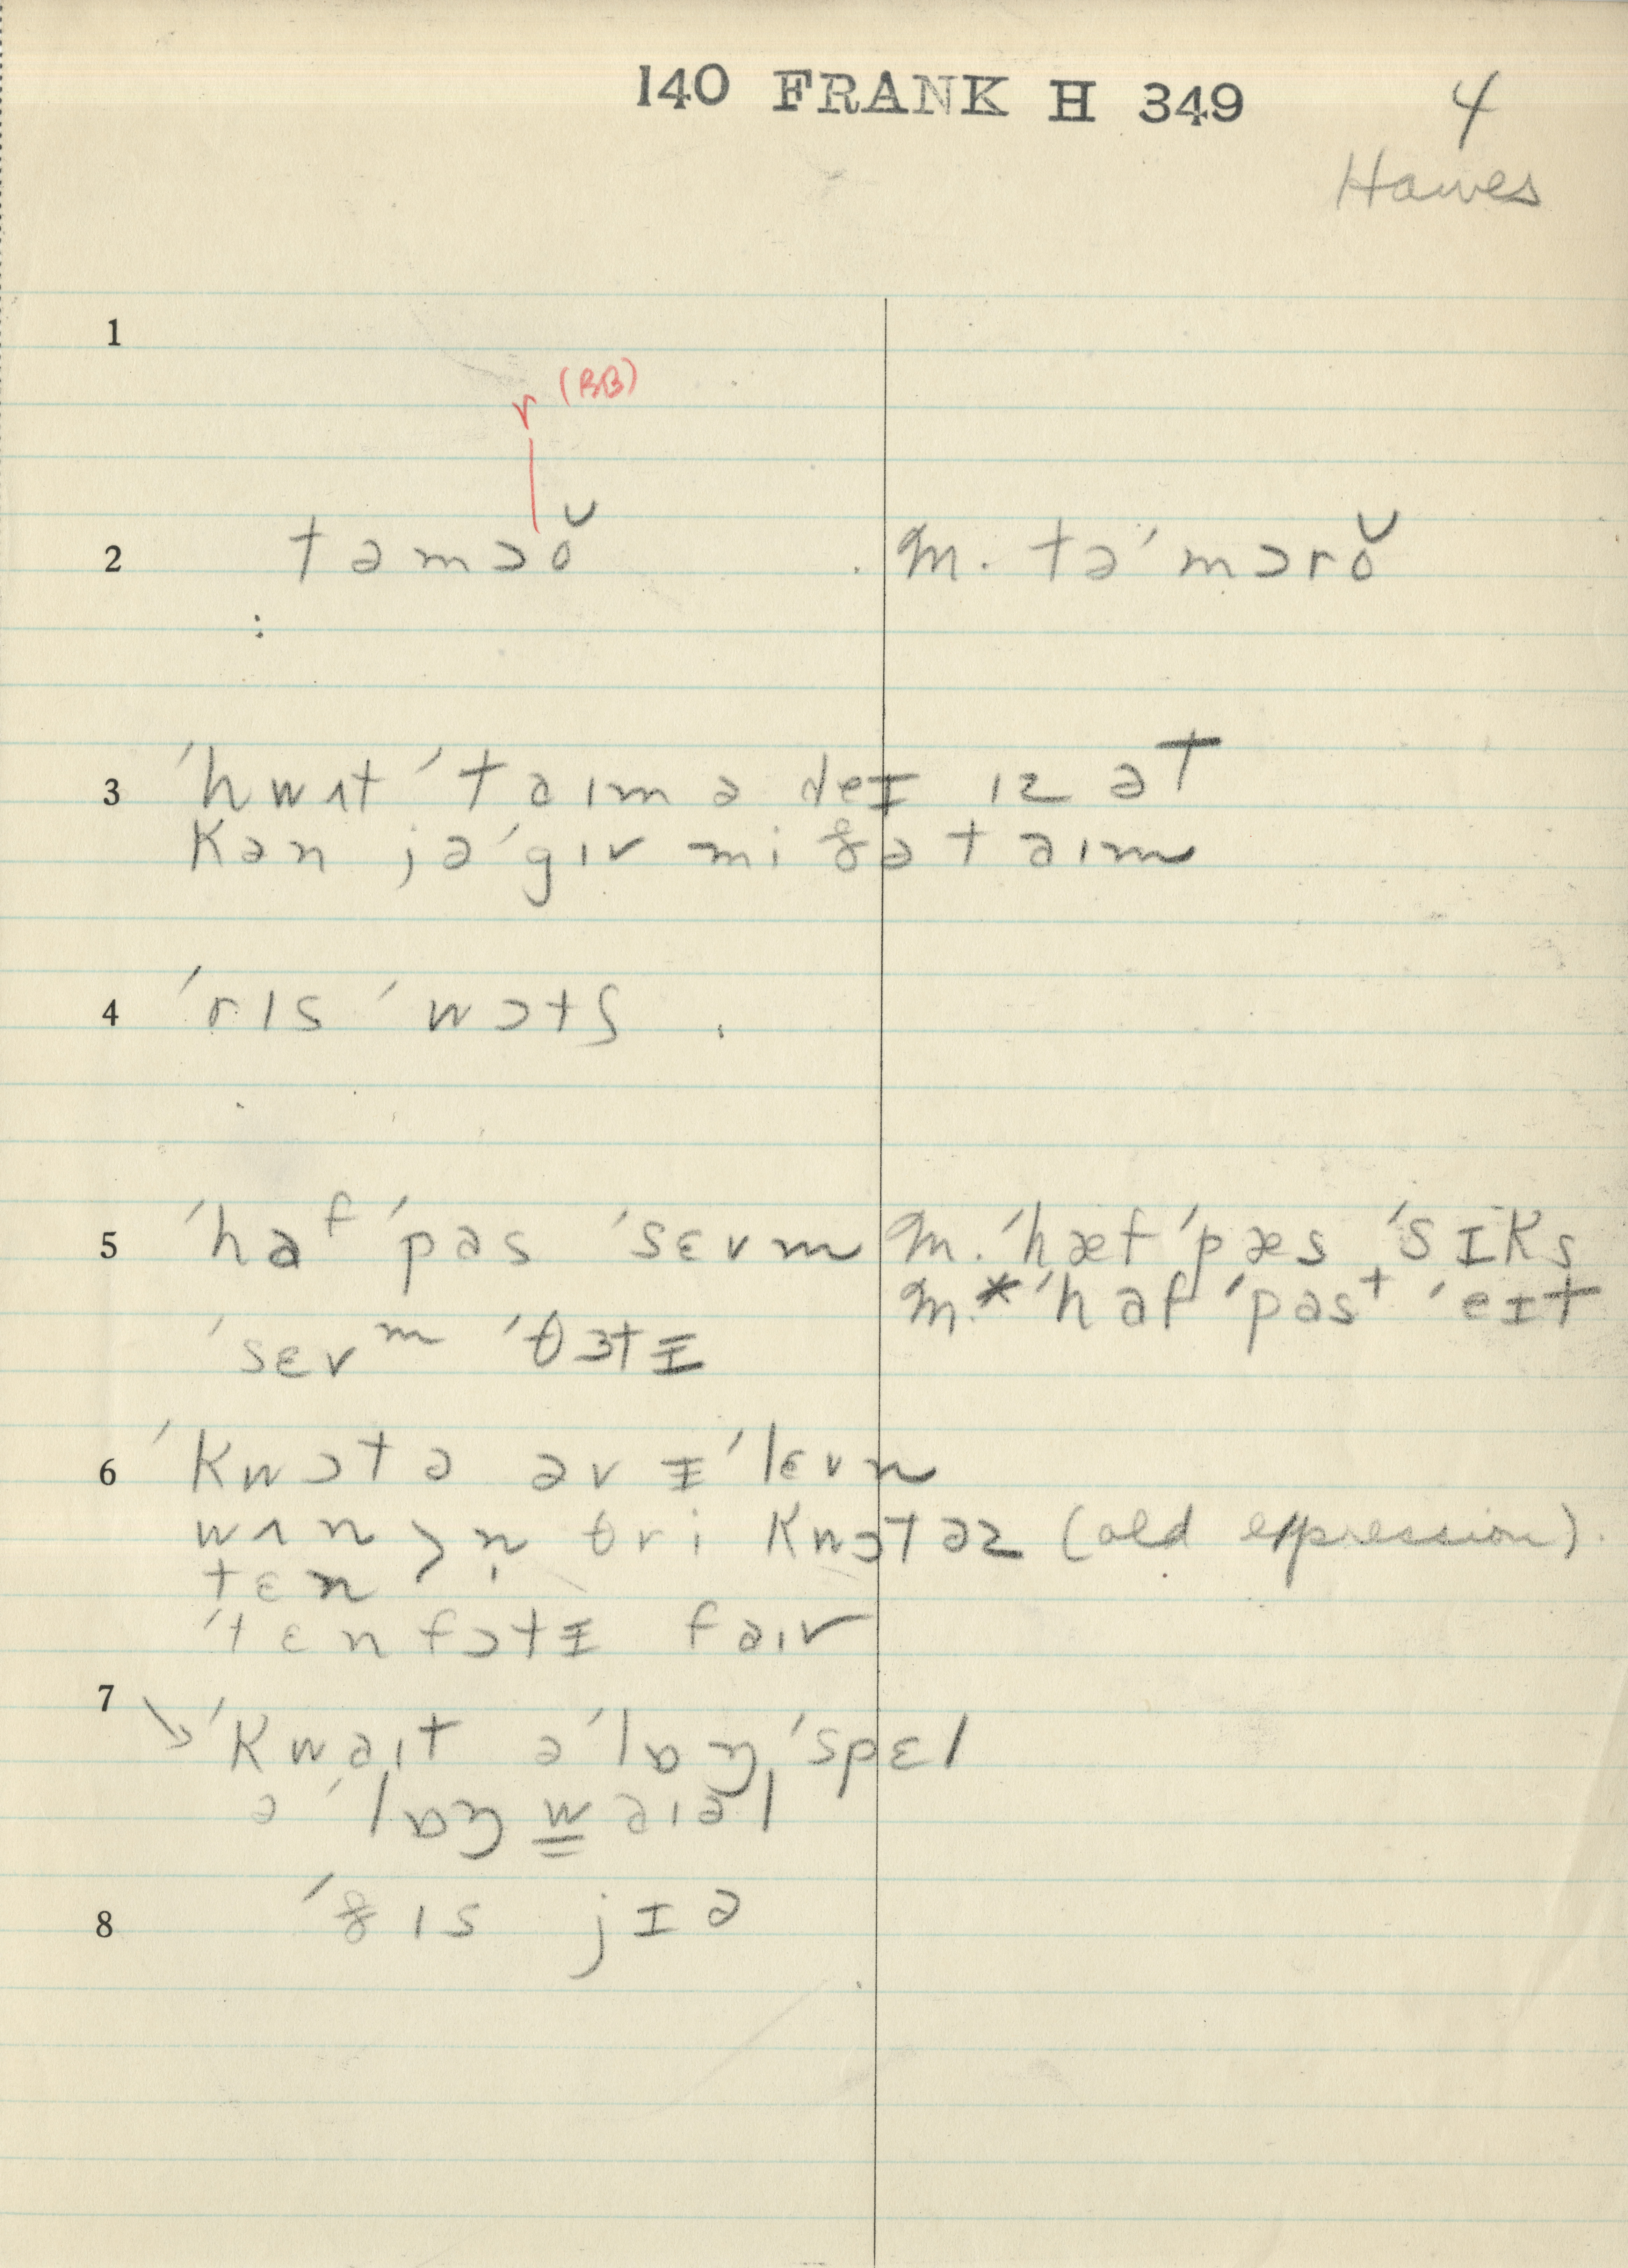 140 FRANK H 349 4
Hawes
1
r (BB)
2 təmɔŏ m. tə'mɔrŏ
3 'hwʌt 'taɪm ə deɪ ɪz ət
kən jə 'gɪv mi ðə taɪm
4 'rɪs 'wɔtʃ
5 'haf 'pas 'sɛvm m. 'hæf 'pæs 'sɪks
m.* 'haf 'past 'eɪt
'sɛvm 'θɜtɪ
6 'kwɔtə əv ɪ'lɛvn
wʌn > n̩ θri kwɔtəz (old expression).
tɛn
'tɛnfɔtɪ faɪv
7
'kwaɪt ə 'lɒŋ 'spɛl
ə 'lɒŋ waɪəl
8 'ðɪs jɪə